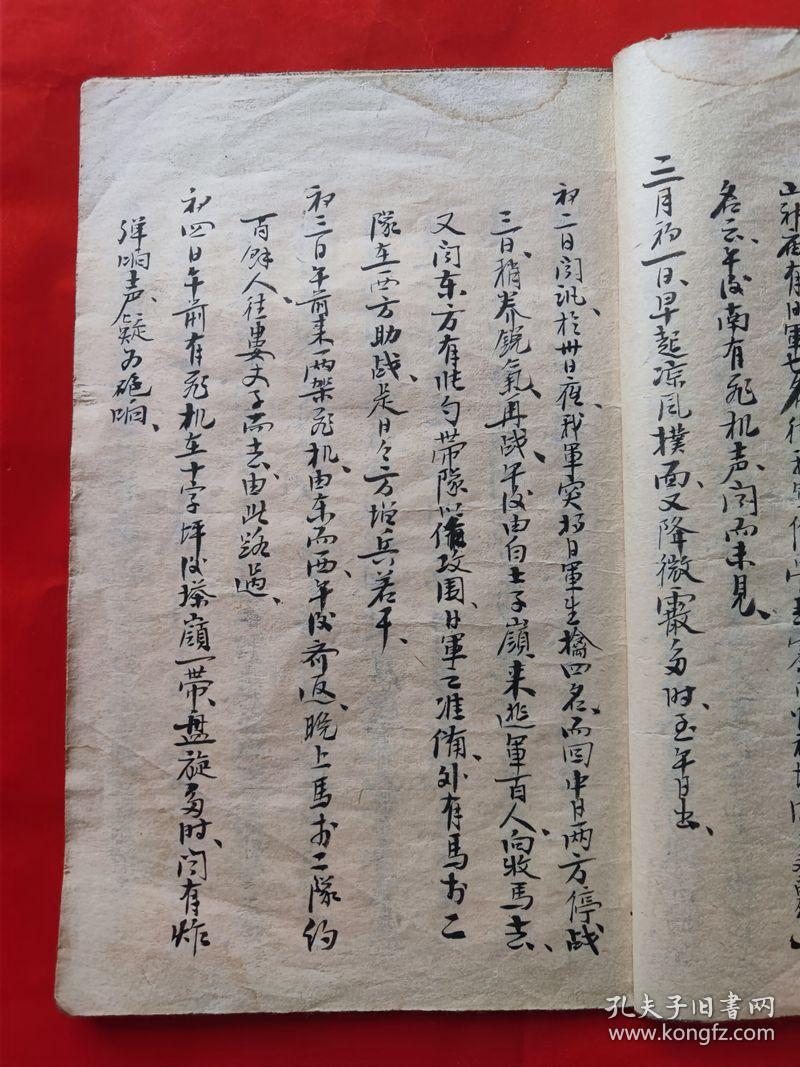 名云、午后南有飛机声、闻而未見、
三月初一日、早起凉风撲面、又降微霰多时、至午日出、
初二日闻訊、於卅日夜、我軍突拐日軍生擒四名、而回中日两方停战
三日、稍养銳氣、再战、午后由白土子嶺来逃軍百人、向收馬去、
又闻东方有帶隊以俻攻围、日軍已准俻、外有馬
隊在西方助战、是日々方增兵若干、
初三日午前来一两架飛机、由东而西、午后斉返、晚上馬隊約
百餘人、往婁丈子而去、由此路過、
初四日午前有飛机在十字坪后塔嶺一带、盘旋多时、闻有炸
弹响声、疑为砲响、
孔夫子旧书网
www.kongfz.com